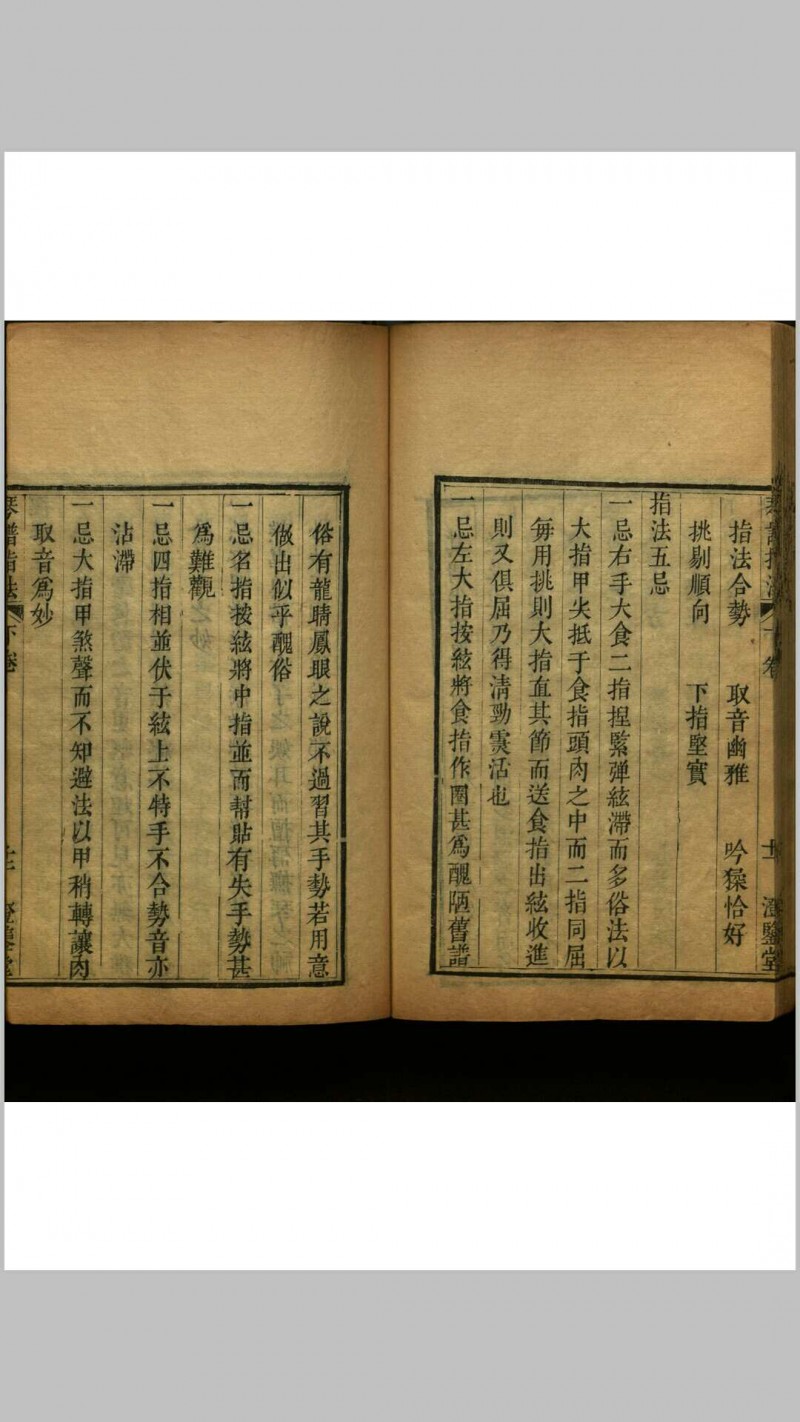 琴譜指法 下卷 十 澄鑒堂
指法合勢 取音幽雅 吟猱恰好
挑剔順向 下指堅實
指法五忌
一忌右手大食二指捏緊弹絃滯而多俗法以
大指甲尖抵于食指頭肉之中而二指同屈
每用挑則大指直其節而送食指出絃收進
則又俱屈乃得清勁霛活也
一忌左大指按絃將食指作圈甚爲醜陋舊譜
俗有龍睛鳳眼之說不過習其手勢若用意
做出似乎醜俗
一忌名指按絃將中指並而幫貼有失手勢甚
爲難觀
一忌四指相並伏于絃上不特手不合勢音亦
沾滯
一忌大指甲煞聲而不知避法以甲稍轉讓肉
取音爲妙
琴譜指法 下卷